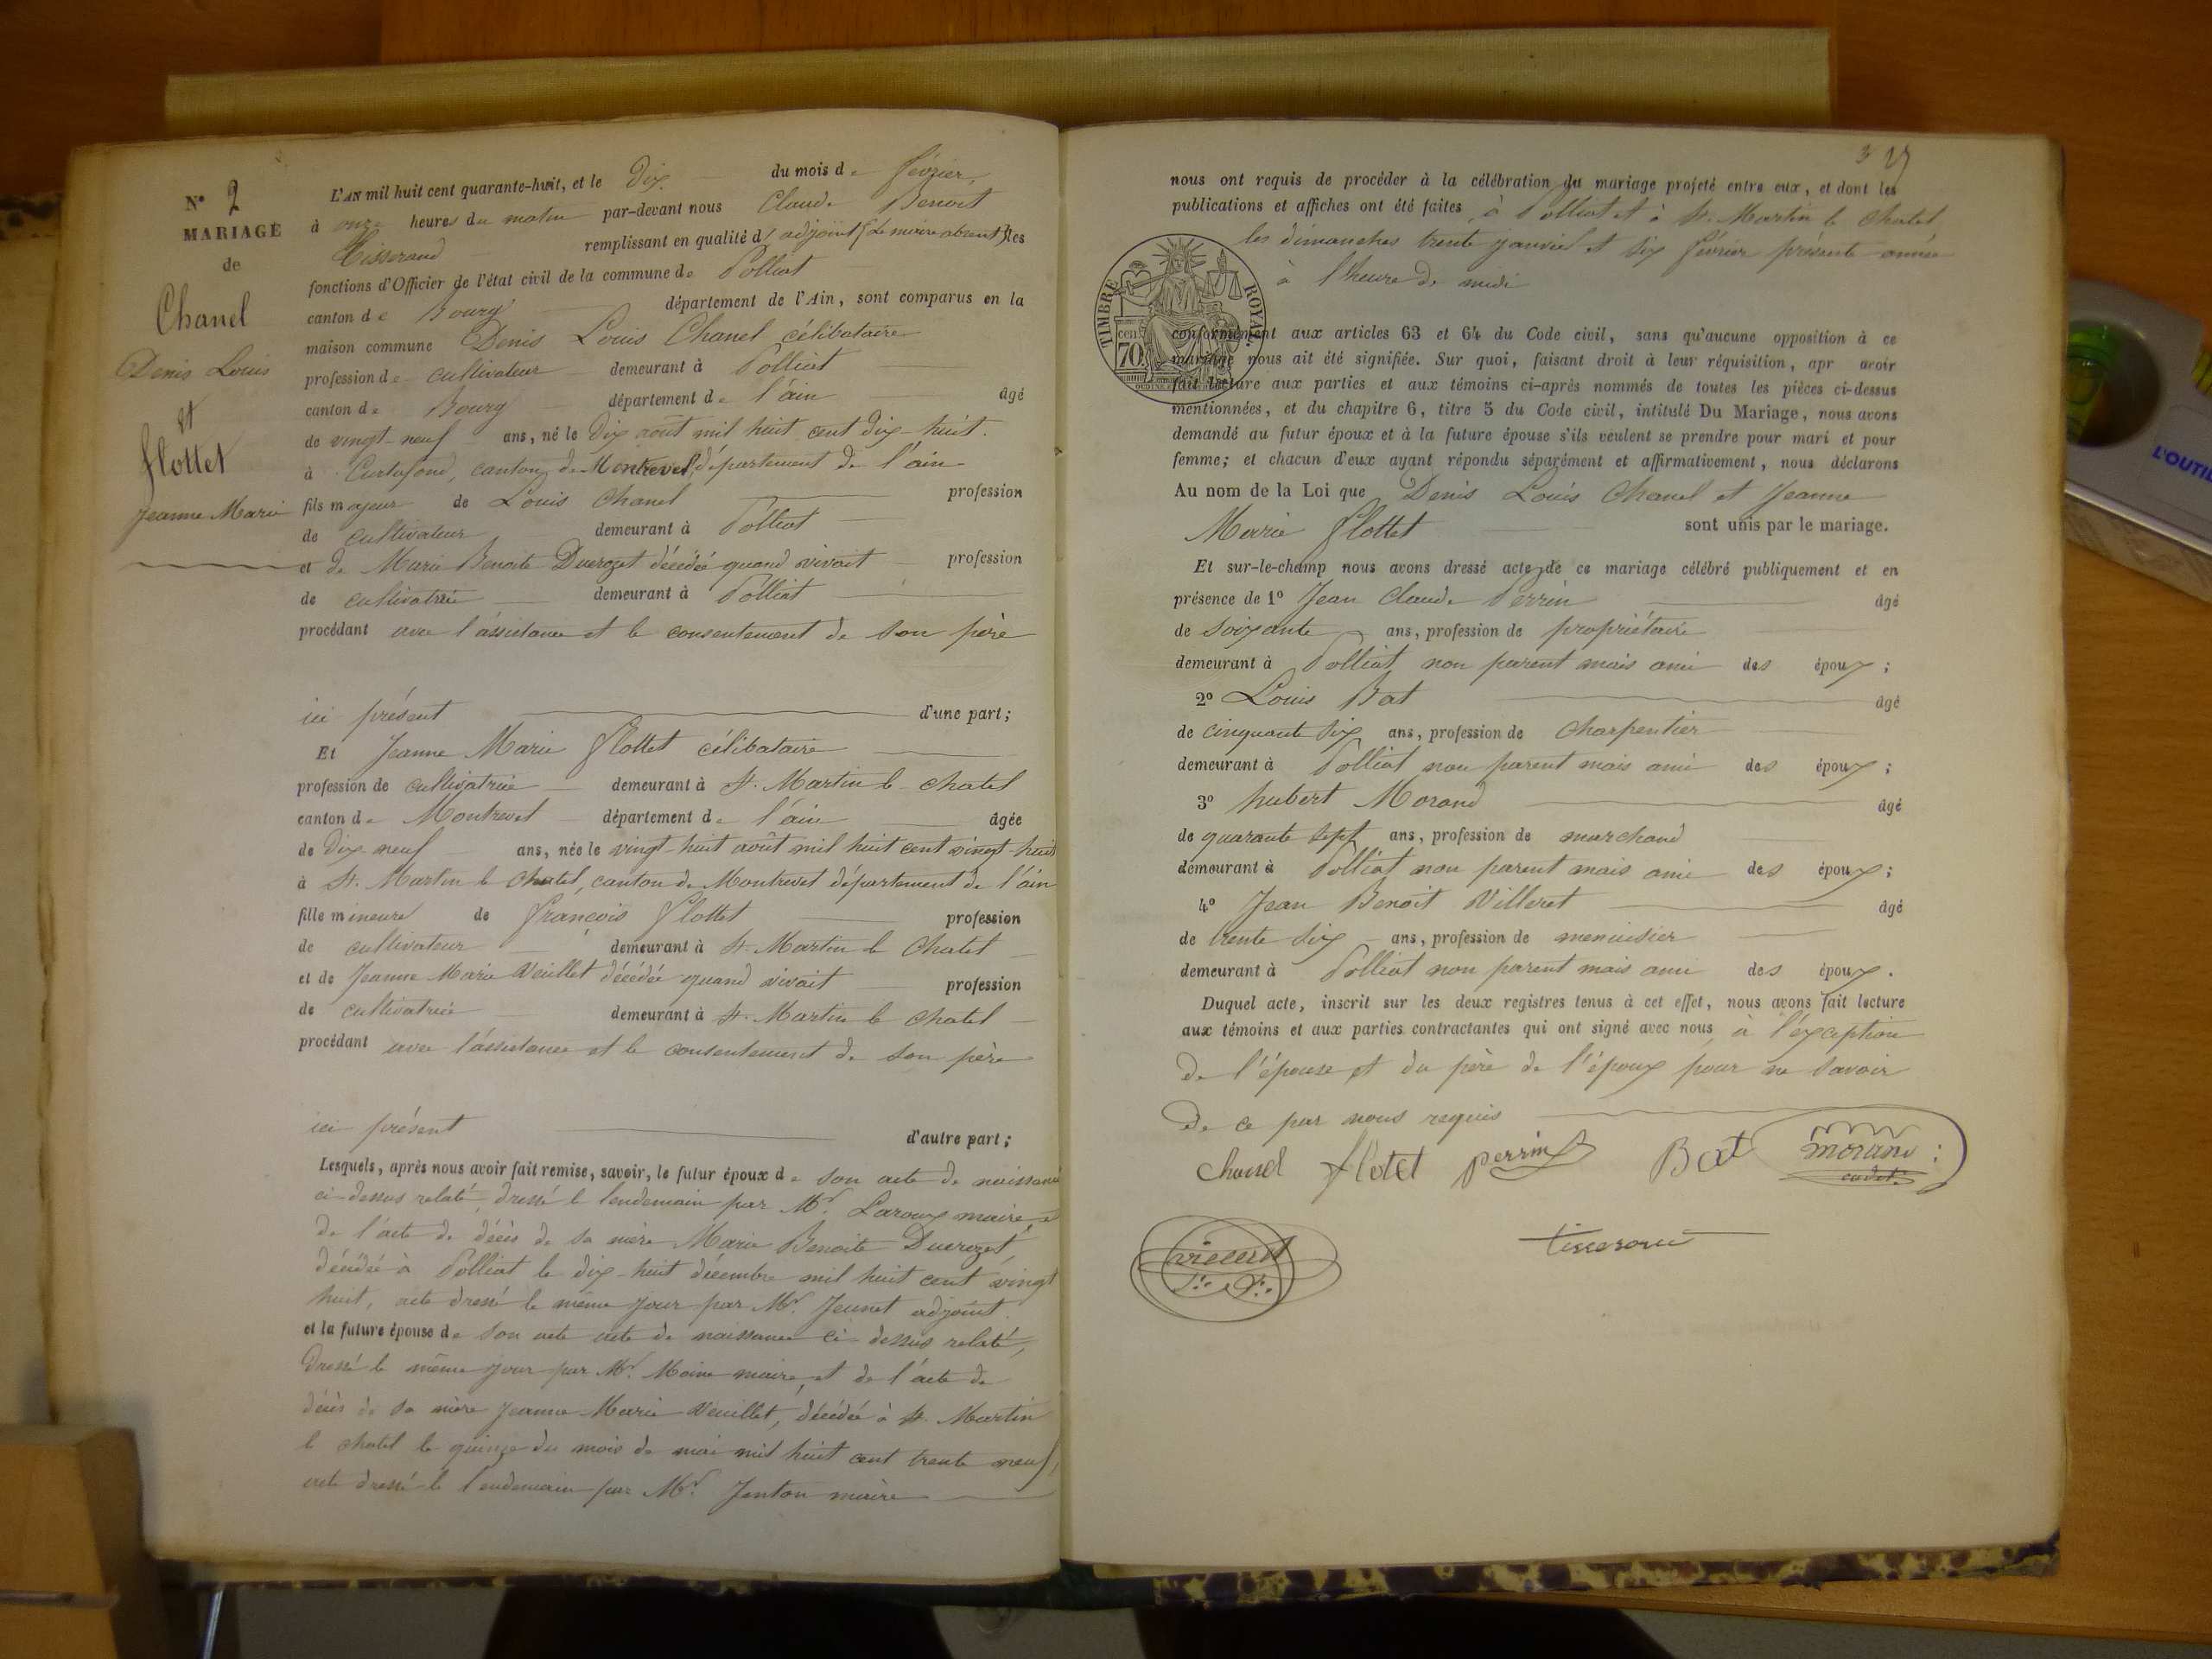 N° 2
MARIAGE
de
Chanel
Denis Louis
et
flottet
Jeanne Marie
L'AN mil huit cent quarante-huit, et le Dix du mois de février,
à onze heures du matin par-devant nous Claude Benoit
Tisserand remplissant en qualité d'adjoint (le maire absent) les
fonctions d'Officier de l'état civil de la commune de Polliat
canton de Bourg département de l'Ain, sont comparus en la
maison commune Denis Louis Chanel célibataire
profession de cultivateur demeurant à Polliat
canton de Bourg département de l'ain âgé
de vingt-neuf ans, né le Dix août mil huit cent dix-huit.
à Curtafond, canton de Montrevel, département de l'ain
fils majeur de Louis Chanel profession
de cultivateur demeurant à Polliat
et de Marie Benoite Ducrozet décédée quand vivait profession
de cultivatrice demeurant à Polliat
procédant avec l'assistance et le consentement de son père
ici présent d'une part;
Et Jeanne Marie flottet célibataire
profession de cultivatrice demeurant à St. Martin le chatel
canton de Montrevel département de l'ain âgée
de Dix neuf ans, née le vingt-huit août mil huit cent vingt-huit
à St. Martin le chatel, canton de Montrevel département de l'ain
fille mineure de françois flottet profession
de cultivateur demeurant à St. Martin le chatel
et de Jeanne Marie Veuillet décédée quand vivait profession
de cultivatrice demeurant à St. Martin le chatel
procédant avec l'assistance et le consentement de son père
ici présent d'autre part;
Lesquels, après nous avoir fait remise, savoir, le futur époux de son acte de naissance
ci-dessus relaté, dressé le lendemain par Mr. Laroux maire, et
de l'acte de décès de sa mère Marie Benoite Ducrozet,
décédée à Polliat le dix-huit décembre mil huit cent vingt
huit, acte dressé le même jour par Mr. Jeunet adjoint.
et la future épouse de son acte acte de naissance ci-dessus relaté,
dressé le même jour par Mr. Moine maire, et de l'acte de
décès de sa mère Jeanne Marie Veuillet, décédée à St. Martin
le chatel le quinze du mois de mai mil huit cent trente neuf,
acte dressé le lendemain par Mr. Jenton maire
3 27
nous ont requis de procéder à la célébration du mariage projeté entre eux, et dont les
publications et affiches ont été faites, à Polliat et à St. Martin le chatel,
les dimanches trente janvier et six février présente année
à l'heure de midi
TIMBRE ROYAL
cent
70
conformément aux articles 63 et 64 du Code civil, sans qu'aucune opposition à ce
mariage nous ait été signifiée. Sur quoi, faisant droit à leur réquisition, apr avoir
fait lecture aux parties et aux témoins ci-après nommés de toutes les pièces ci-dessus
mentionnées, et du chapitre 6, titre 5 du Code civil, intitulé Du Mariage, nous avons
demandé au futur époux et à la future épouse s'ils veulent se prendre pour mari et pour
femme; et chacun d'eux ayant répondu séparément et affirmativement, nous déclarons
Au nom de la Loi que Denis Louis Chanel et Jeanne
Marie flottet sont unis par le mariage.
Et sur-le-champ nous avons dressé acte de ce mariage célébré publiquement et en
présence de 1° Jean Claude Perrin âgé
de soixante ans, profession de propriétaire
demeurant à Polliat non parent mais ami des époux;
2° Louis Bat âgé
de cinquante six ans, profession de charpentier
demeurant à Polliat non parent mais ami des époux;
3° hubert Morand âgé
de quarante sept ans, profession de marchand
demeurant à Polliat non parent mais ami des époux;
4° Jean Benoit Villeret âgé
de trente six ans, profession de menuisier
demeurant à Polliat non parent mais ami des époux.
Duquel acte, inscrit sur les deux registres tenus à cet effet, nous avons fait lecture
aux témoins et aux parties contractantes qui ont signé avec nous, à l'exception
de l'épouse et du père de l'époux pour ne savoir
de ce par nous requis
chanel flotet perrin Bat morand
cadet
tisserand
L'OUTIL